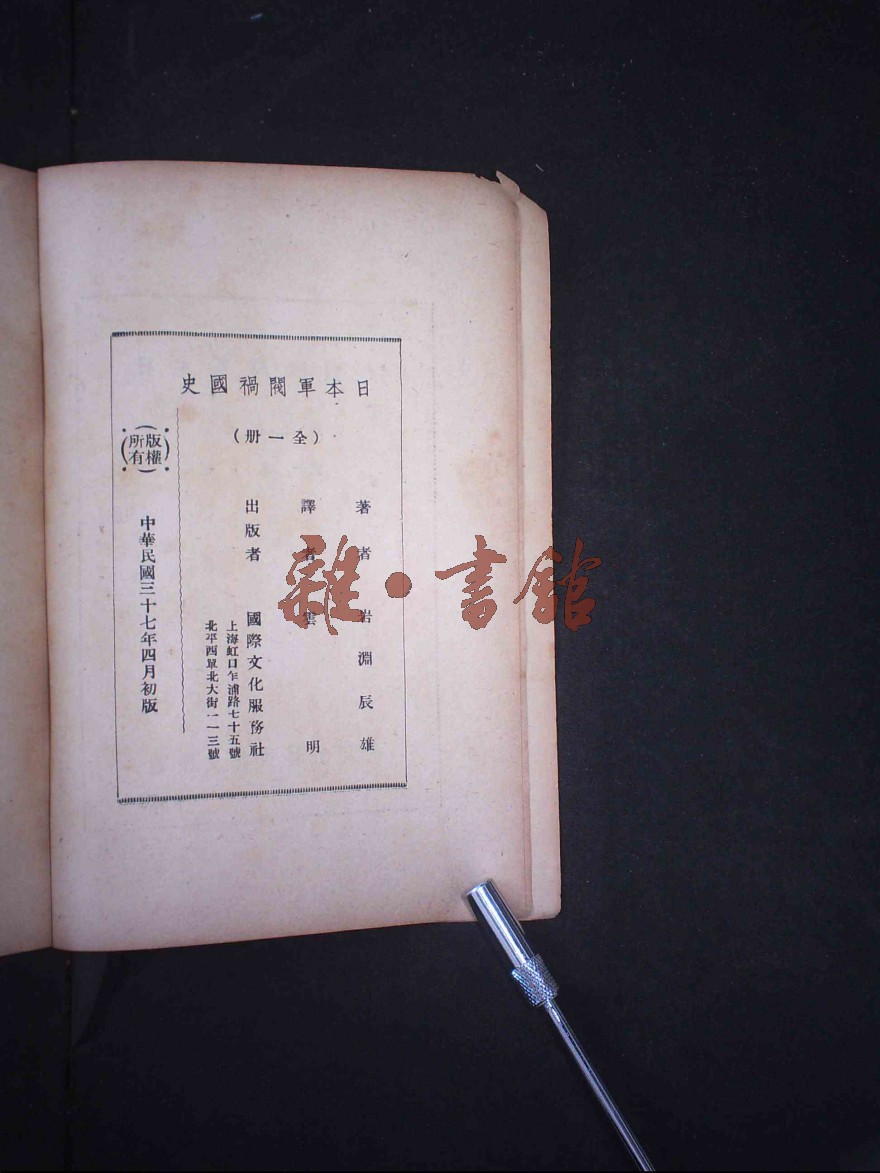 日本軍閥禍國史
(全一册)
著者 岩淵辰雄
譯者 雲明
出版者 國際文化服務社
上海虹口乍浦路七十五號
北平西單北大街一一三號
版權所有
中華民國三十七年四月初版
雜·書館